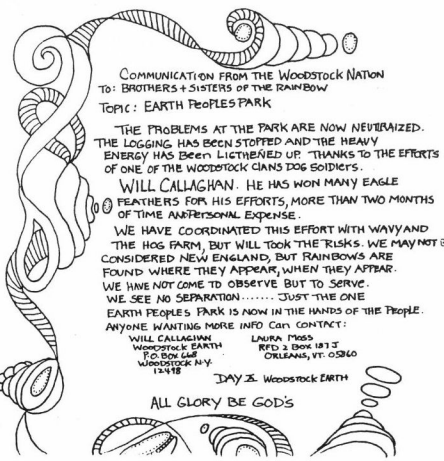 COMMUNICATION FROM THE WOODSTOCK NATION
TO: BROTHERS + SISTERS OF THE RAINBOW
TOPIC: EARTH PEOPLES PARK
THE PROBLEMS AT THE PARK ARE NOW NEUTRALIZED.
THE LOGGING HAS BEEN STOPPED AND THE HEAVY
ENERGY HAS BEEN LIGTHENED UP. THANKS TO THE EFFORTS
OF ONE OF THE WOODSTOCK CLANS DOG SOLDIERS.
WILL CALLAGHAN. HE HAS WON MANY EAGLE
FEATHERS FOR HIS EFFORTS, MORE THAN TWO MONTHS
OF TIME AND PERSONAL EXPENSE.
WE HAVE COORDINATED THIS EFFORT WITH WAVY AND
THE HOG FARM, BUT WILL TOOK THE RISKS. WE MAY NOT
CONSIDERED NEW ENGLAND, BUT RAINBOWS ARE
FOUND WHERE THEY APPEAR, WHEN THEY APPEAR.
WE HAVE NOT COME TO OBSERVE BUT TO SERVE.
WE SEE NO SEPARATION....... JUST THE ONE
EARTH PEOPLES PARK IS NOW IN THE HANDS OF THE PEOPLE.
ANYONE WANTING MORE INFO CAN CONTACT:
WILL CALLAGHAN
WOODSTOCK EARTH
P.O. BOX 668
WOODSTOCK N.Y.
12498
LAURA MOSS
RFD 2 BOX 187J
ORLEANS, VT. 05860
DAY X WOODSTOCK EARTH
ALL GLORY BE GOD'S